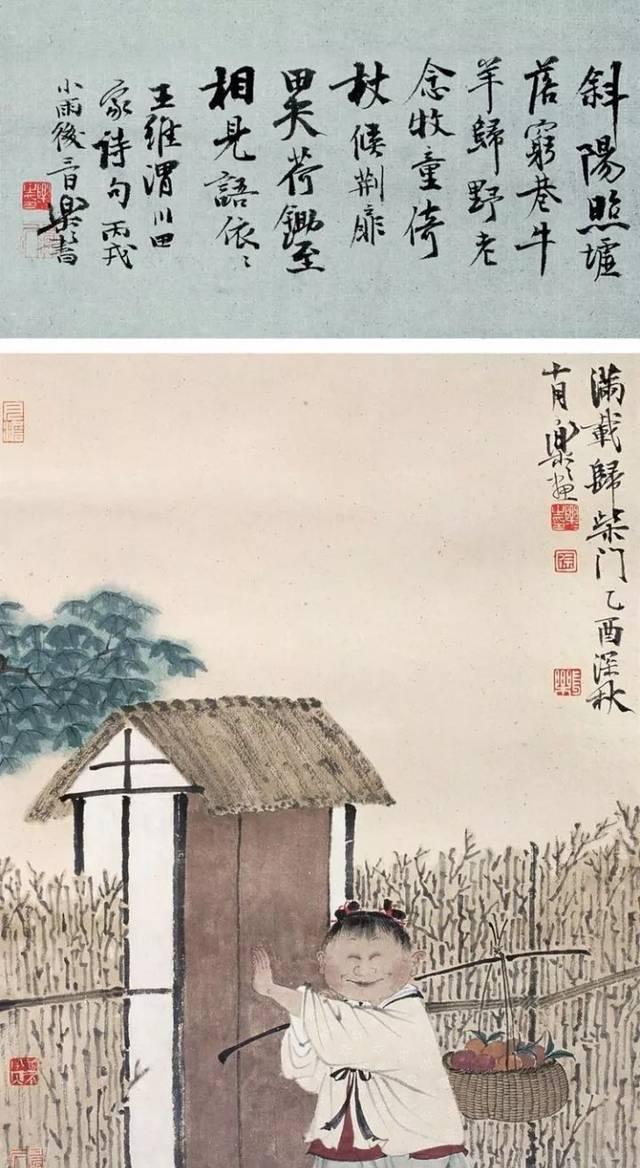 斜陽照墟
落窮巷牛
羊歸野老
念牧童倚
杖候荊扉
田夫荷鋤至
相見語依〻
王維渭川田
家詩句丙戌
小雨後樂〻書
滿載歸柴门乙酉深秋
十月樂〻畫